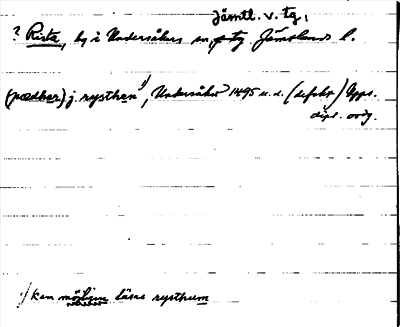 Jämtl. v. tg,
? Rista, by i Undersåkers sn, Jämtlands l.
(pædher) j rysthen 1), Undersåker 1495 u.d. (defekt) Upps.
dipl. orig.
1) kan möjl. läsas rysthum